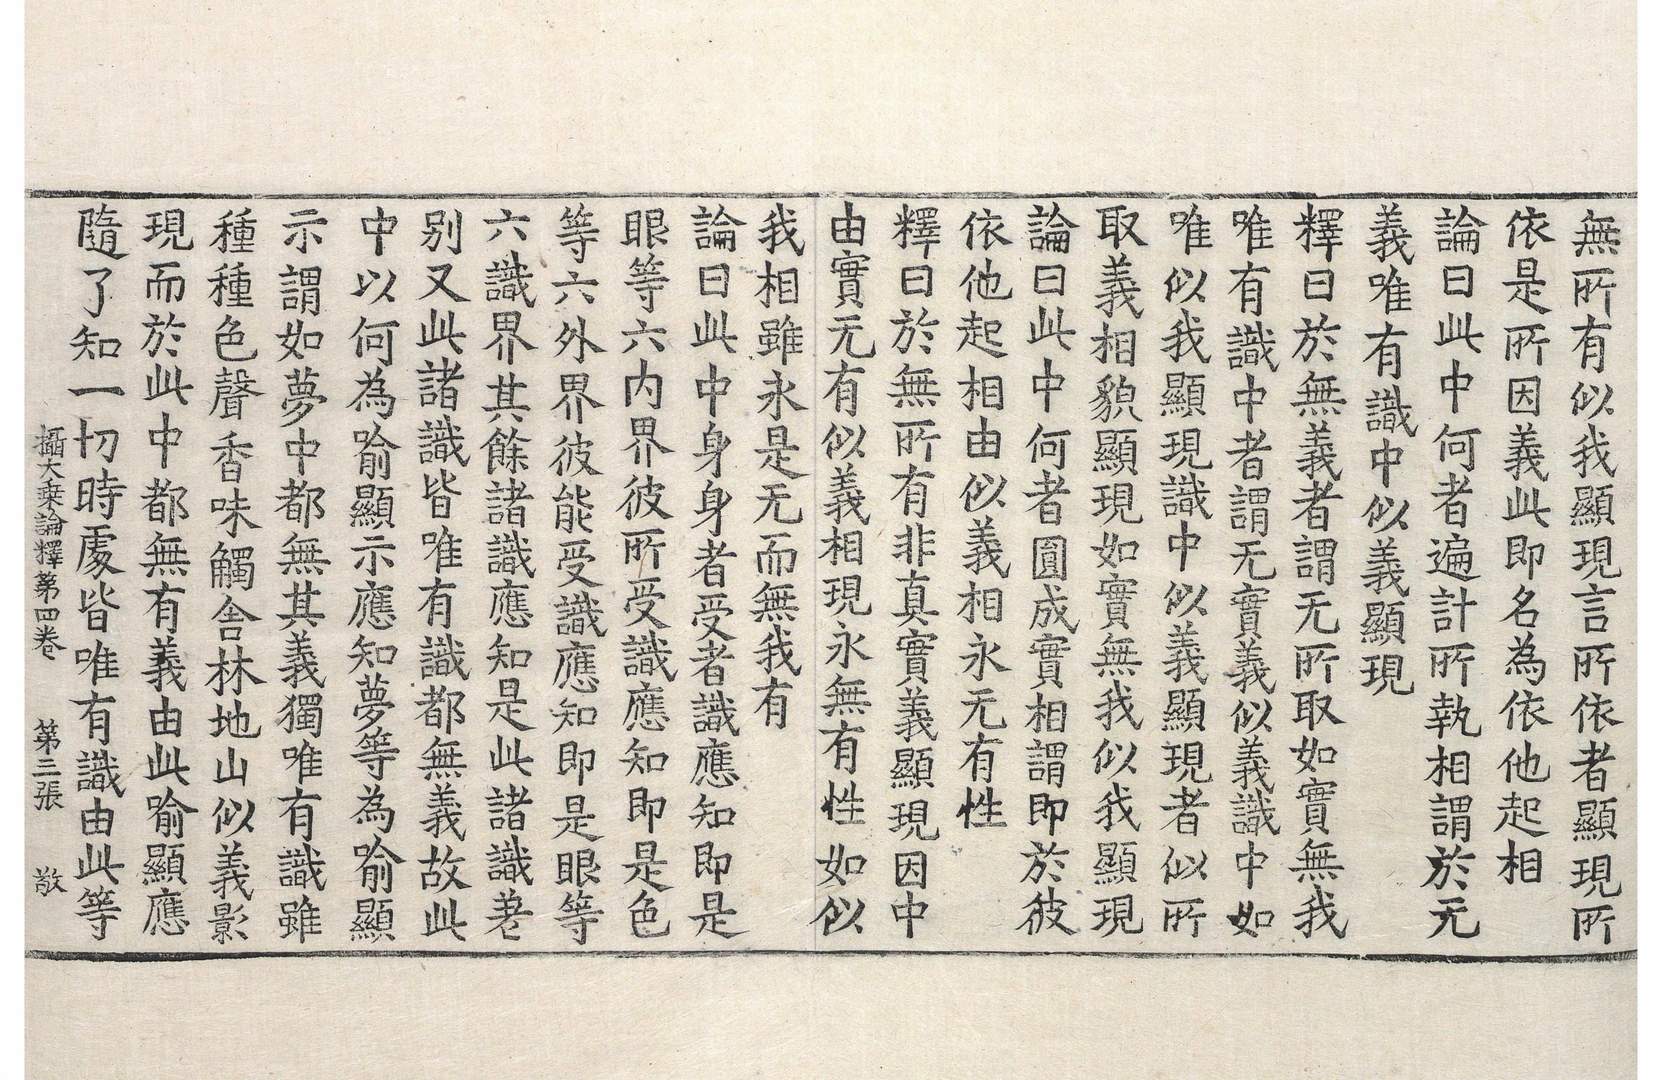 無所有似我顯現言所依者顯現所
依是所因義此即名為依他起相
論曰此中何者遍計所執相謂於无
義唯有識中似義顯現
釋曰於無義者謂无所取如實無我
唯有識中者謂无實義似義識中如
唯似我顯現識中似義顯現者似所
取義相貌顯現如實無我似我顯現
論曰此中何者圓成實相謂即於彼
依他起相由似義相永无有性
釋曰於無所有非真實義顯現因中
由實无有似義相現永無有性如似
我相雖永是无而無我有
論曰此中身身者受者識應知即是
眼等六内界彼所受識應知即是色
等六外界彼能受識應知即是眼等
六識界其餘諸識應知是此諸識差
别又此諸識皆唯有識都無義故此
中以何為喻顯示應知夢等為喻顯
示謂如夢中都無其義獨唯有識雖
種種色聲香味觸舍林地山似義影
現而於此中都無有義由此喻顯應
隨了知一切時處皆唯有識由此等
攝大乗論釋第四卷　第三張　敞